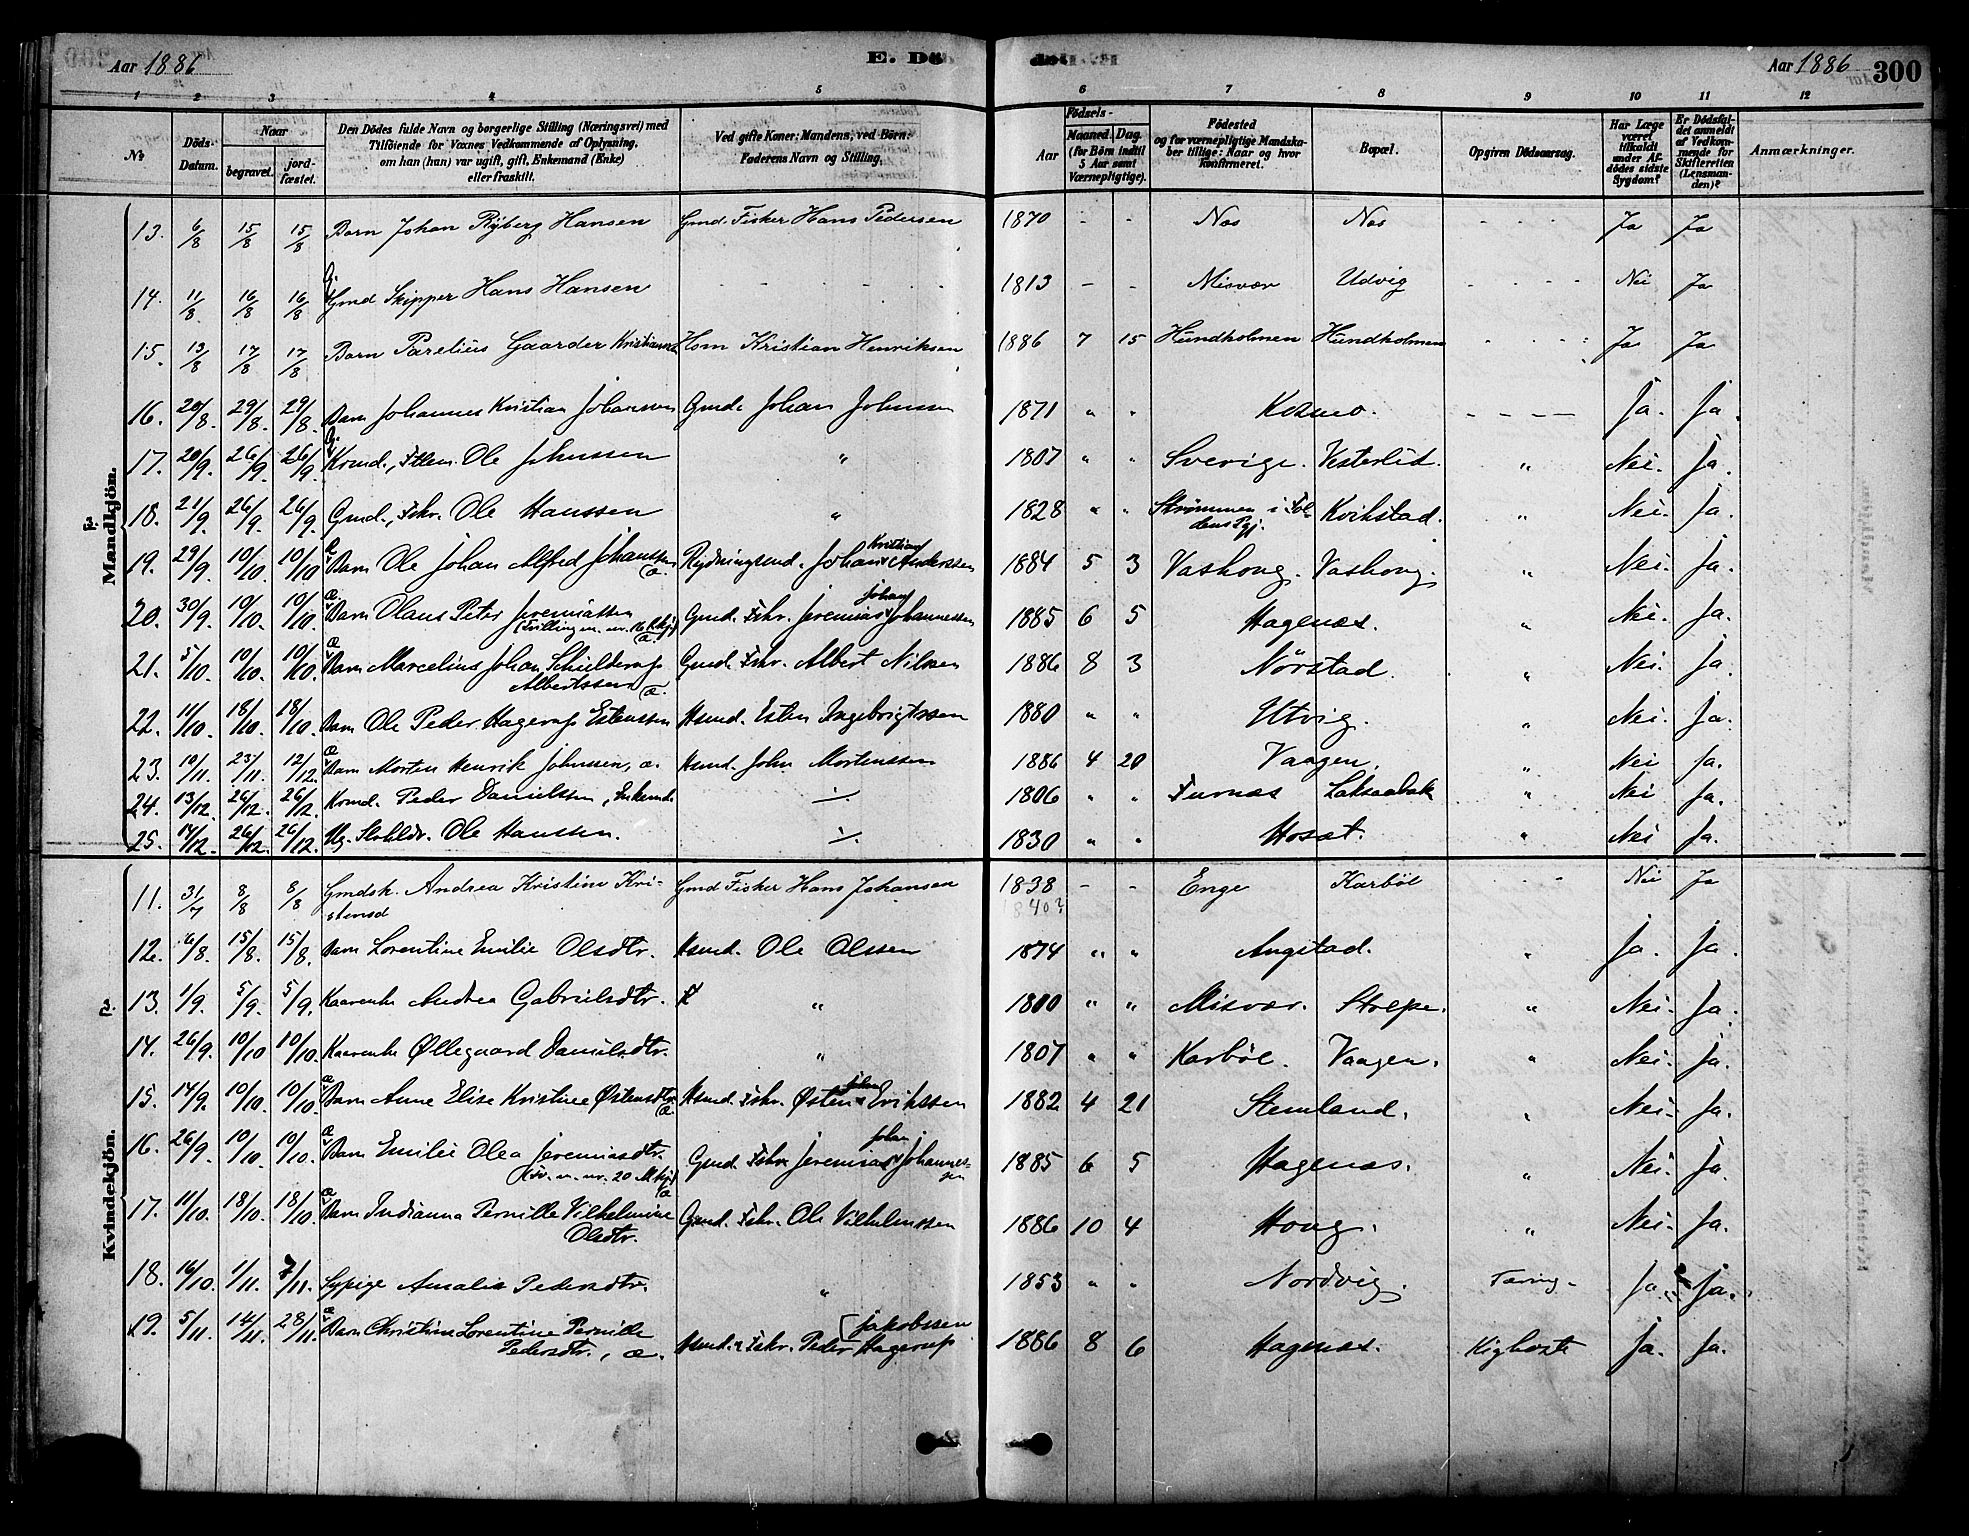 Aar 1886 E. Dö de. Aar 1886 300
1 2 3 4 5 6 7 8 9 10 11 12
No Döds-Datum. Naar begravet. jordfæstet. Den Dödes fulde Navn og borgerlige Stilling (Næringsvei) med Tilföiende for Voxnes Vedkommende af Oplysning, om han (hun) var ugift, gift, Enkemand (Enke) eller fraskilt. Ved gifte Koner: Mandens, ved Börn: Faderens Navn og Stilling. Aar Födsels- Maaned. Dag. (for Börn indtil 5 Aar samt Værnepligtige). Födested og for værnepligtige Mandskaber tillige: Naar og hvor konfirmeret. Bopæl. Opgiven Dödsaarsag. Har Læge været tilkaldt under Afdödes sidste Sygdom? Er Dödsfaldet anmeldt af Vedkommende for Skifteretten (Lensmanden)? Anmærkninger.
Mandkjön.
13. 6/8 15/8 15/8 Barn Johan Ryberg Hansen Gmd. Fisker Hans Pedersen 1870 - - Nos Nos - - - Ja Ja
14. 11/8 16/8 16/8 Gmd Skipper Hans Hansen - - - - 1813 - - Misvær Udvig - - - Nei Ja
15. 13/8 17/8 17/8 Barn Parelius Gaarder Kristians Hom Kristian Henriksen 1886 7 15 Hundholmen Hundholmen - - - Ja Ja
16. 20/8. 29/8. 29/8. Barn Johannes Kristian Johansen Gmd. Johan Johnsen 1871 " " Kosmo. - - - - Ja. Ja.
17. 20/9. 26/9. 26/9. Kvmd., Ole Johnssen " 1807 " " Sverige. Vesterlid. " Nei. Ja.
18. 21/9. 26/9. 26/9. Gmd., Fskr. Ole Hanssen " 1828 " " Strømmen i Foldens Pgj. Kvikstad. " Nei. Ja.
19. 29/9. 10/10 10/10 Barn Ole Johan Alfred Johanssen Rydningsmd. Johan Kristian Anderssen 1884 5 3 Vashong. Vashong. " Nei. Ja.
20. 30/9. 10/10. 10/10. Barn Olaus Peter Jeremiassen (Tvilling m. nr. 16 Kkj.) Gmd. Fskr. Jeremias Johan Johannessen 1885 6 5 Hagenæs. " Nei. Ja.
21. 5/10. 10/10. 10/10. Barn Marcelius Johan Schielderup Albertssen Gmd. Fskr. Albert Nilsen 1886 8 3 Nørstad. " Nei. Ja.
22. 11/10. 18/10. 18/10. Barn Ole Peder Hagerup Estenssen Hsmd. Esten Ingebrigtssen 1880 " " Utvig. " Nei. Ja.
23. 10/11. 23/11. 12/12. Barn Morten Henrik Johnssen, æ. Hsmd. John Mortenssen 1886 4 20 Vaagen. " Nei Ja.
24. 13/12. 26/12. 26/12. Kvmd. Peder Danielssen, Enkemd. ./. 1806 " " Furnæs Laksaabak " Nei Ja.
25. 14/12. 26/12. 26/12. Ug. Ole Hanssen. ./. 1830 " " Hosat. " Nei Ja.
Kvindekjön.
11. 31/7 8/8 8/8 Gmdsk. Andrea Kristine Kristensd Gmd Fisker Hans Johansen 1838 - - Enge Karbøl - - Nei Ja
1840?
12. 6/8. 15/8. 15/8. Barn Lorentine Emilie Olsdtr. Hsmd. Ole Olssen 1874 " " Angstad. " Ja. Ja.
13. 1/9. 5/9. 5/9. Kaarenke Andrea Gabrielsdtr. " 1800 " " Misvær. Stolpe. " Nei. Ja.
14. 26/9. 10/10 10/10. Kaarenke Øllegaard Danielsdtr. " 1807 " " Karbøl. Vaagen. " Nei. Ja.
15. 14/9. 10/10. 10/10. Barn Anne Elise Kristine Østensdtr. Hsmd. Fskr. Østen Johan Erikssen 1882 4 21 Stemland. " Nei. Ja.
16. 26/9. 10/10. 10/10. Barn Emilie Olea Jeremiasdtr. (Tv. m. nr. 20 Mkj.) Gmd. Fskr. Jeremias Johan Johannessen 1885 6 5 Hagenæs. " Nei. Ja.
17. 11/10. 18/10. 18/10. Barn Indianna Pernille Vilhelmine Olsdtr. Gmd. Fskr. Ole Vilhelmssen 1886 10 4 Hong. " Nei. Ja.
18. 16/10. 1/11. 7/11. Sypige Amalia Pedersdtr. " 1853 " " Nordvig. Tæring. Ja. Ja.
19. 5/11. 14/11. 28/11. Barn Christine Lorentine Pernille Pedersdtr., æ. Hsmd. Fskr. Peder Hagerup Jakobssen 1886 8 6 Hagenæs. Kighoste Ja. Ja.